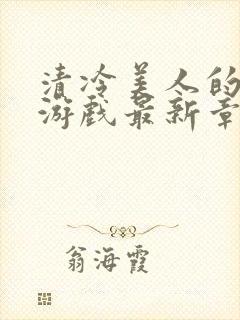 清冷美人的
游戏最新章
翁海霞